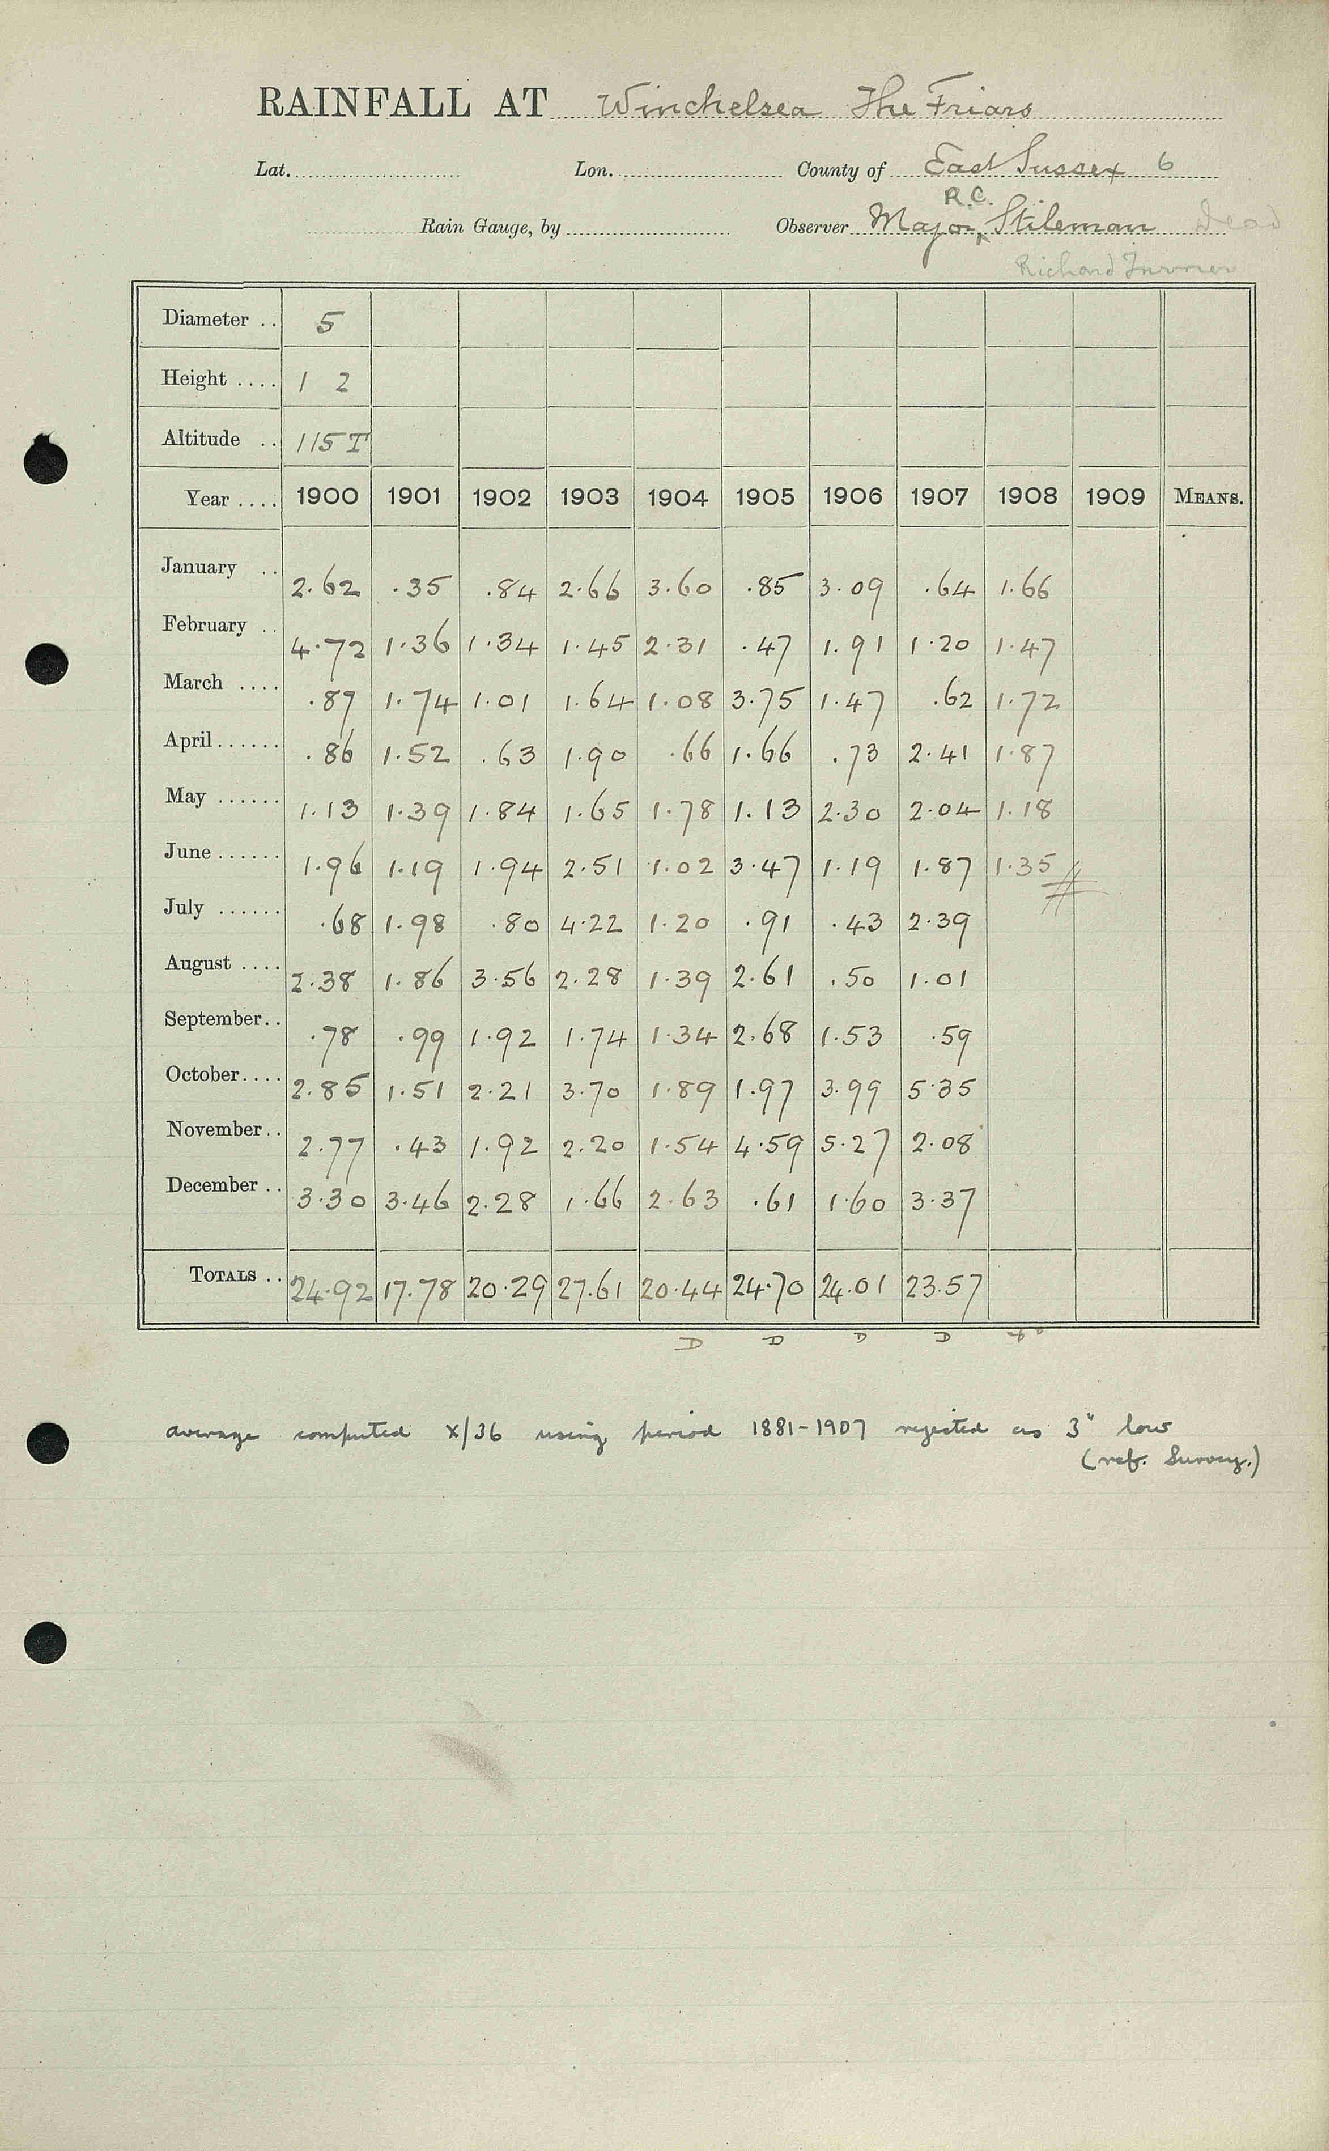 RAINFALL AT Winchelsea The Friars
Lat. Lon. County of East Sussex 6
R.C.
Rain Gauge, by Observer Major Stileman Dead
Richard
Diameter .. 5
Height .... 1 2
Altitude .. 115 T
Year .... 1900 1901 1902 1903 1904 1905 1906 1907 1908 1909 MEANS.
January .. 2.62 .35 .84 2.66 3.60 .85 3.09 .64 1.66
February .. 4.72 1.36 1.34 1.45 2.31 .47 1.91 1.20 1.47
March .... .87 1.74 1.01 1.64 1.08 3.75 1.47 .62 1.72
April...... .86 1.52 .63 1.90 .66 1.66 .73 2.41 1.87
May ...... 1.13 1.39 1.84 1.65 1.78 1.13 2.30 2.04 1.18
June...... 1.96 1.19 1.94 2.51 1.02 3.47 1.19 1.87 1.35
July ...... .68 1.98 .80 4.22 1.20 .91 .43 2.39
August .... 2.38 1.86 3.56 2.28 1.39 2.61 .50 1.01
September.. .78 .99 1.92 1.74 1.34 2.68 1.53 .59
October.... 2.85 1.51 2.21 3.70 1.89 1.97 3.99 5.35
November.. 2.77 .43 1.92 2.20 1.54 4.59 5.27 2.08
December .. 3.30 3.46 2.28 1.66 2.63 .61 1.60 3.37
TOTALS .. 24.92 17.78 20.29 27.61 20.44 24.70 24.01 23.57
D D D D
average computed x/36 using period 1881-1907 rejected as 3" low
(ref. Survey.)